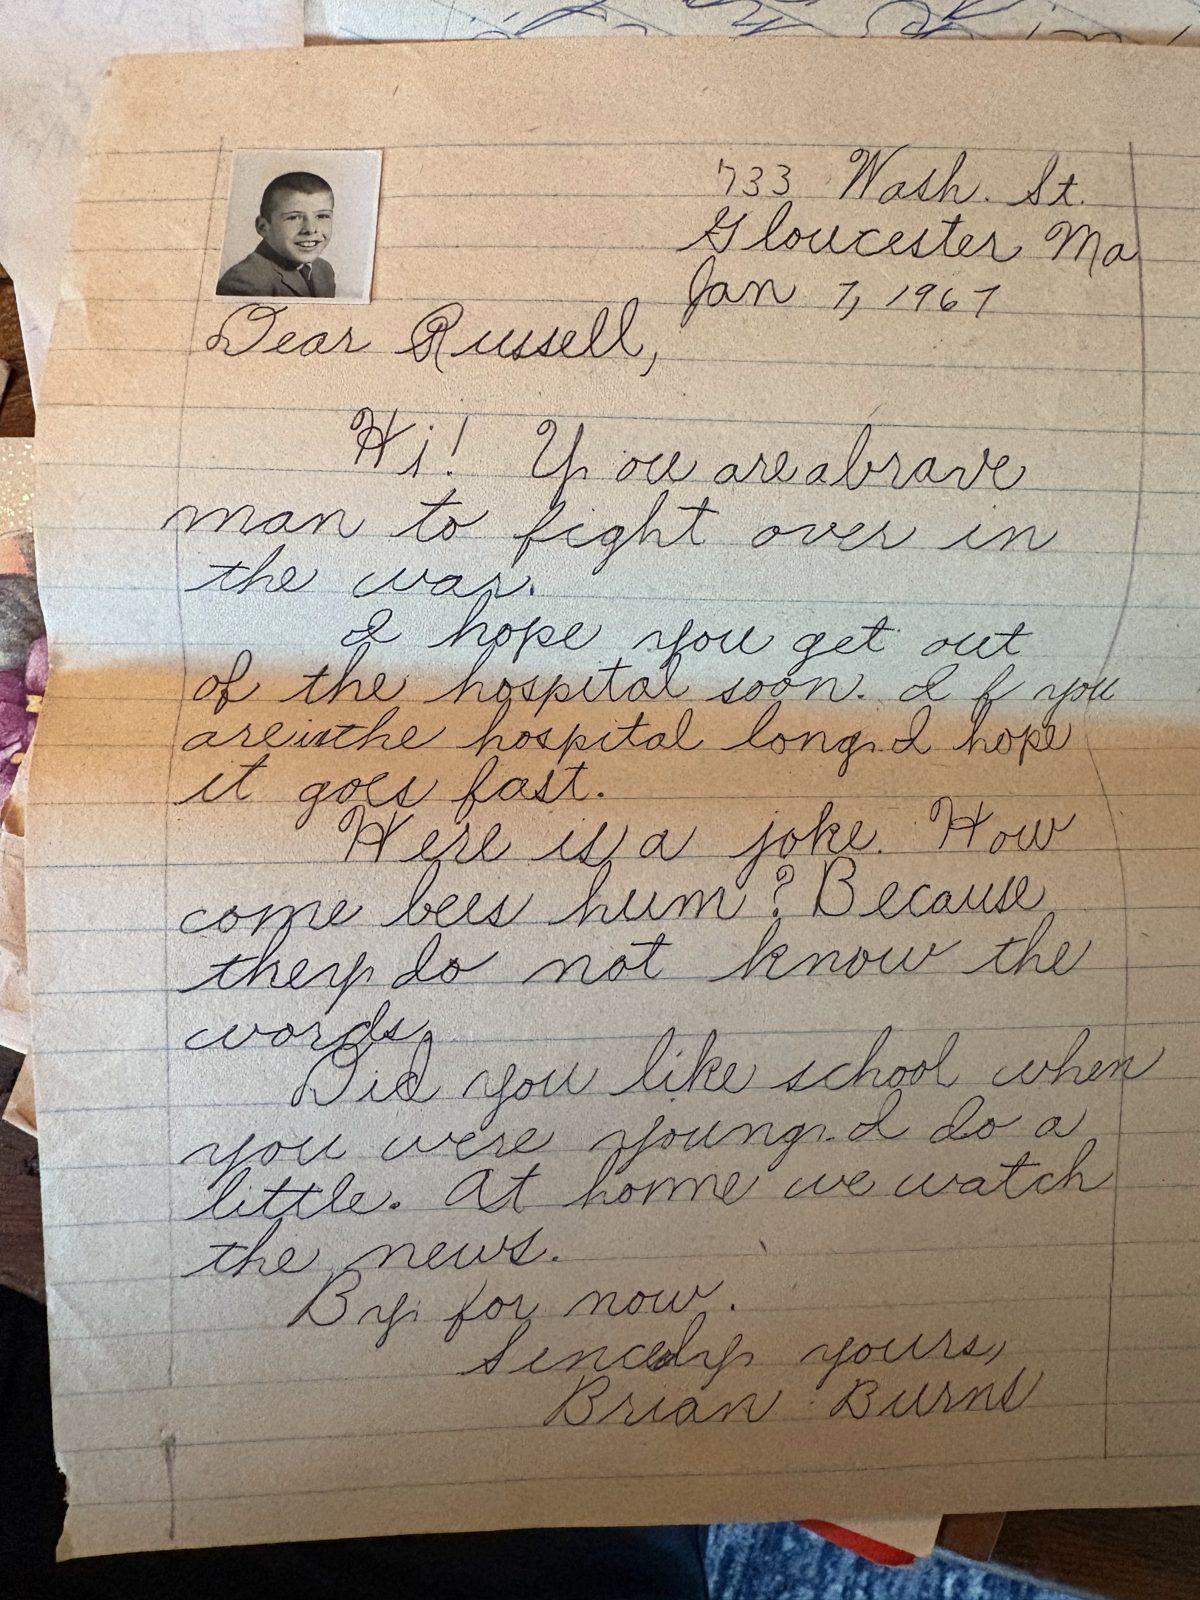 733 Wash. St.
Gloucester Ma
Jan 7, 1967
Dear Russell,
Hi! You are a brave
man to fight over in
the war.
I hope you get out
of the hospital soon. If you
are in the hospital long. I hope
it goes fast.
Here is a joke. How
come bees hum? Because
they do not know the
words.
Did you like school when
you were young. I do a
little. At home we watch
the news.
By for now.
Sincedly yours,
Brian Burns